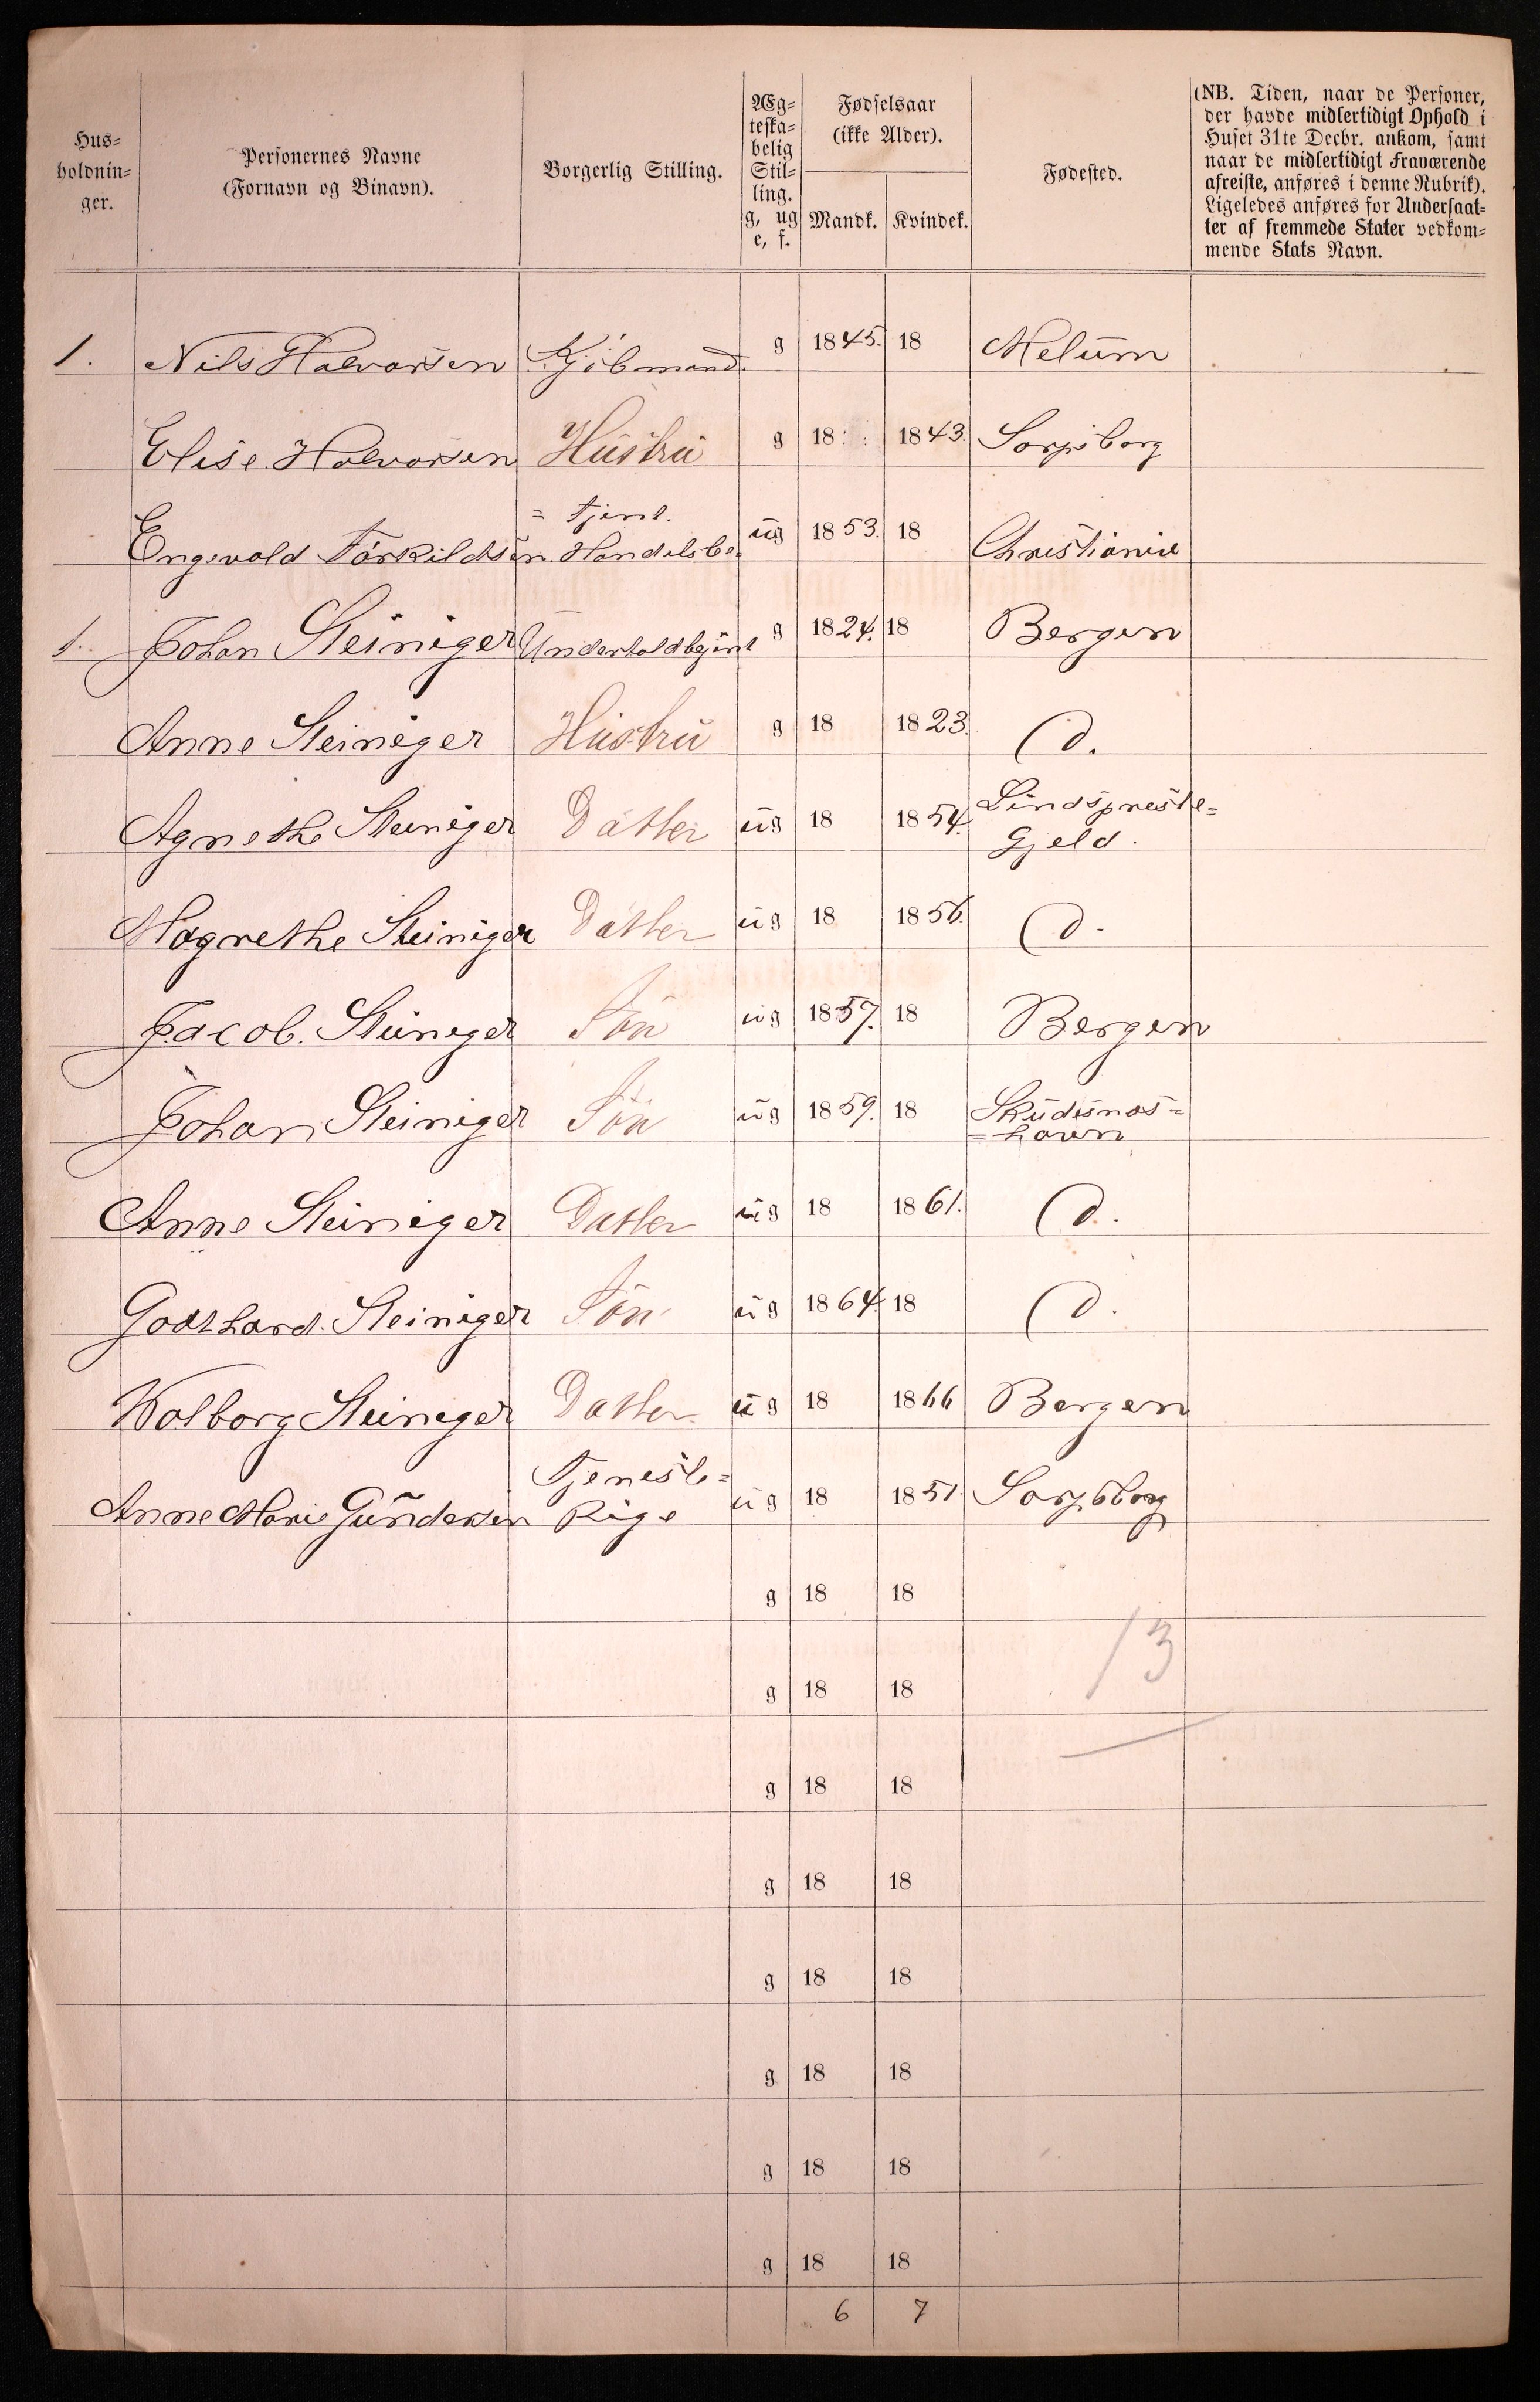 Hus-
holdnin-
ger.
Personernes Navne
(Fornavn og Binavn).
Borgerlig Stilling.
Æg-
teska-
belig
Stil-
ling.
g, ug
e, f.
Fødselsaar
(ikke Alder).
Mandk. Kvindek.
Fødested.
(NB. Tiden, naar de Personer,
der havde midlertidigt Ophold i
Huset 31te Decbr. ankom, samt
naar de midlertidigt Fraværende
afreiste, anføres i denne Rubrik).
Ligeledes anføres for Undersaat-
ter af fremmede Stater vedkom-
mende Stats Navn.
1. Nils Halvorsen Kjöbmand. g 1845. 18 Melum
Elise Halvorsen Hustru g 18 1843. Sarpsborg
= tjent.
Engevald Törkildsen Handelsbe= ug 1853. 18 Christiania
1. Johan Steiniger Underholdbgjent g 1824. 18 Bergen
Anne Steiniger Hustru g 18 1823. d.
Agnethe Steiniger Datter ug 18 1854. Lindspreste=
Gjeld.
Magrethe Steiniger Datter ug 18 1856. d.
Jacob. Steiniger Sön ug 1857. 18 Bergen
Johan Steiniger Sön ug 1859. 18 Skudesnas=
=havn
Anne Steiniger Datter ug 18 1861. d.
Godthard. Steiniger Sön ug 1864. 18 d.
Wolborg Steiniger Datter ug 18 1866 Bergen
Anne Marie Gundersen Tjeneste=
Pige ug 18 1851 Sarpsborg
g 18 18
13
g 18 18
g 18 18
g 18 18
g 18 18
g 18 18
g 18 18
g 18 18
6 7